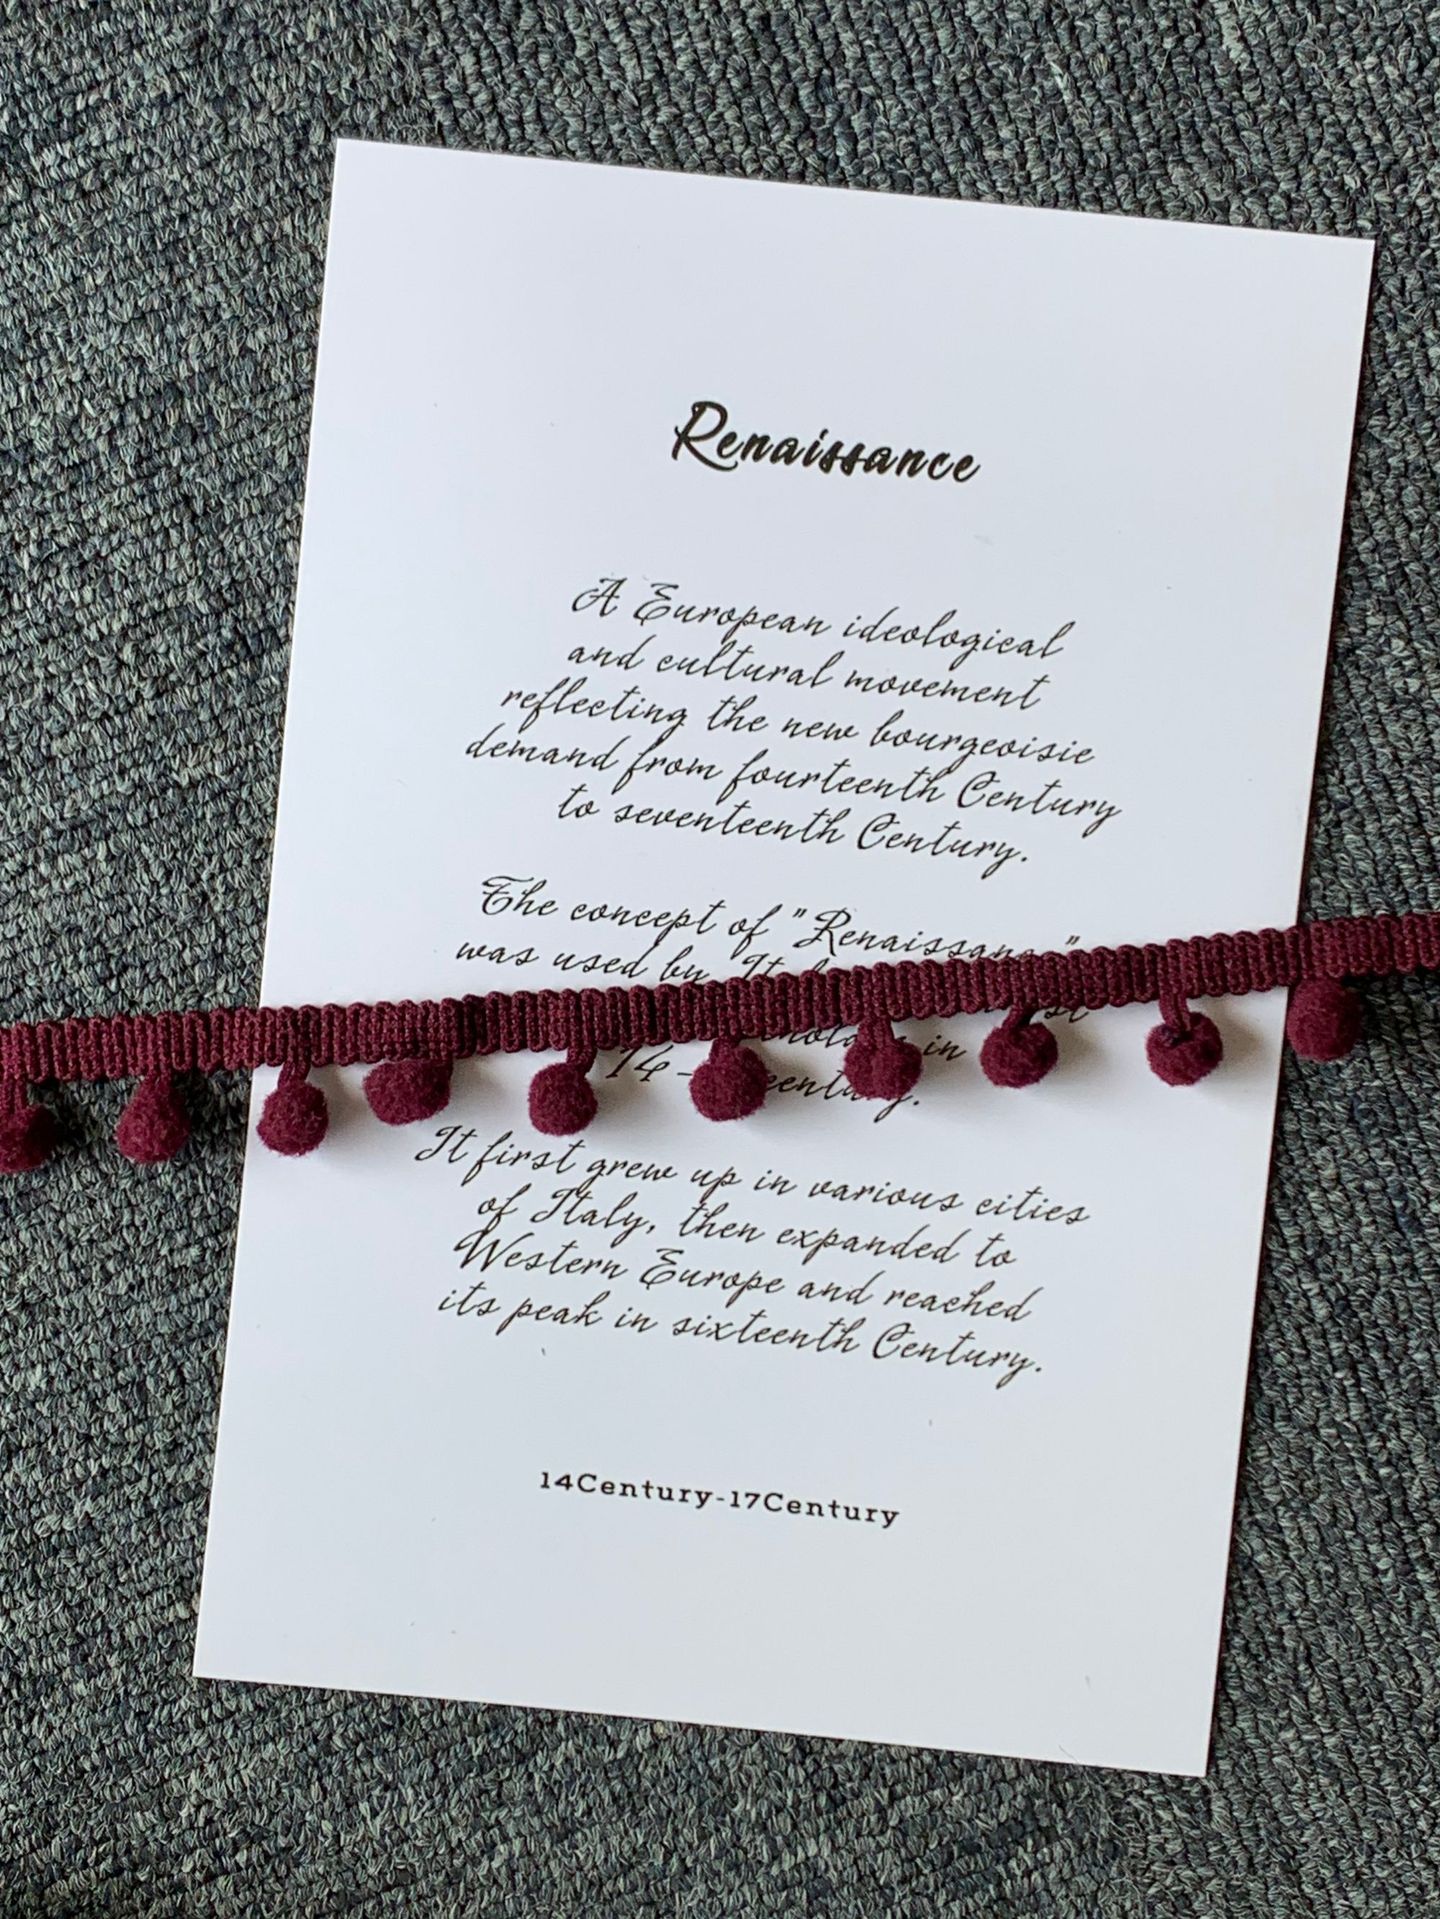 Renaissance
A European ideological
and cultural movement
reflecting the new bourgeoisie
demand from fourteenth Century
to seventeenth Century.
The concept of "Renaissance"
was used by
in
14- century.
It first grew up in various cities
of Italy, then expanded to
Western Europe and reached
its peak in sixteenth Century.
14Century-17Century